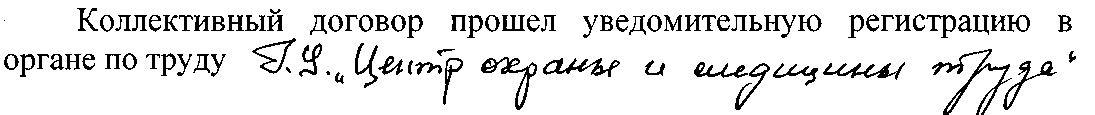 Коллективный договор прошел уведомительную регистрацию в
органе по труду Г.У. „Центр охраны и медицины труда“